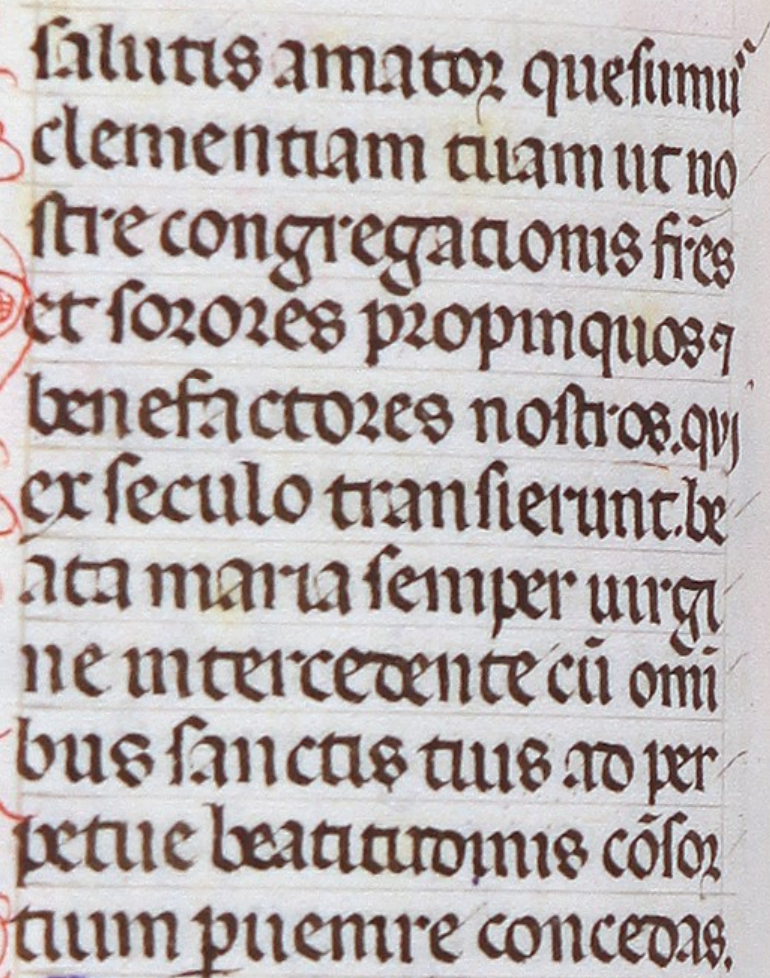 salutis amator quesumuˢ
clementiam tuam ut no
stre congregationis fr̄es
et sorores propinquos ⁊
benefactores nostros. qui
ex seculo transierunt. be
ata maria semper uirgi
ne intercedente cū om̄i
bus sanctis tuis ad per
petue beatitudinis cōsor
tium ꝑuenire concedas.